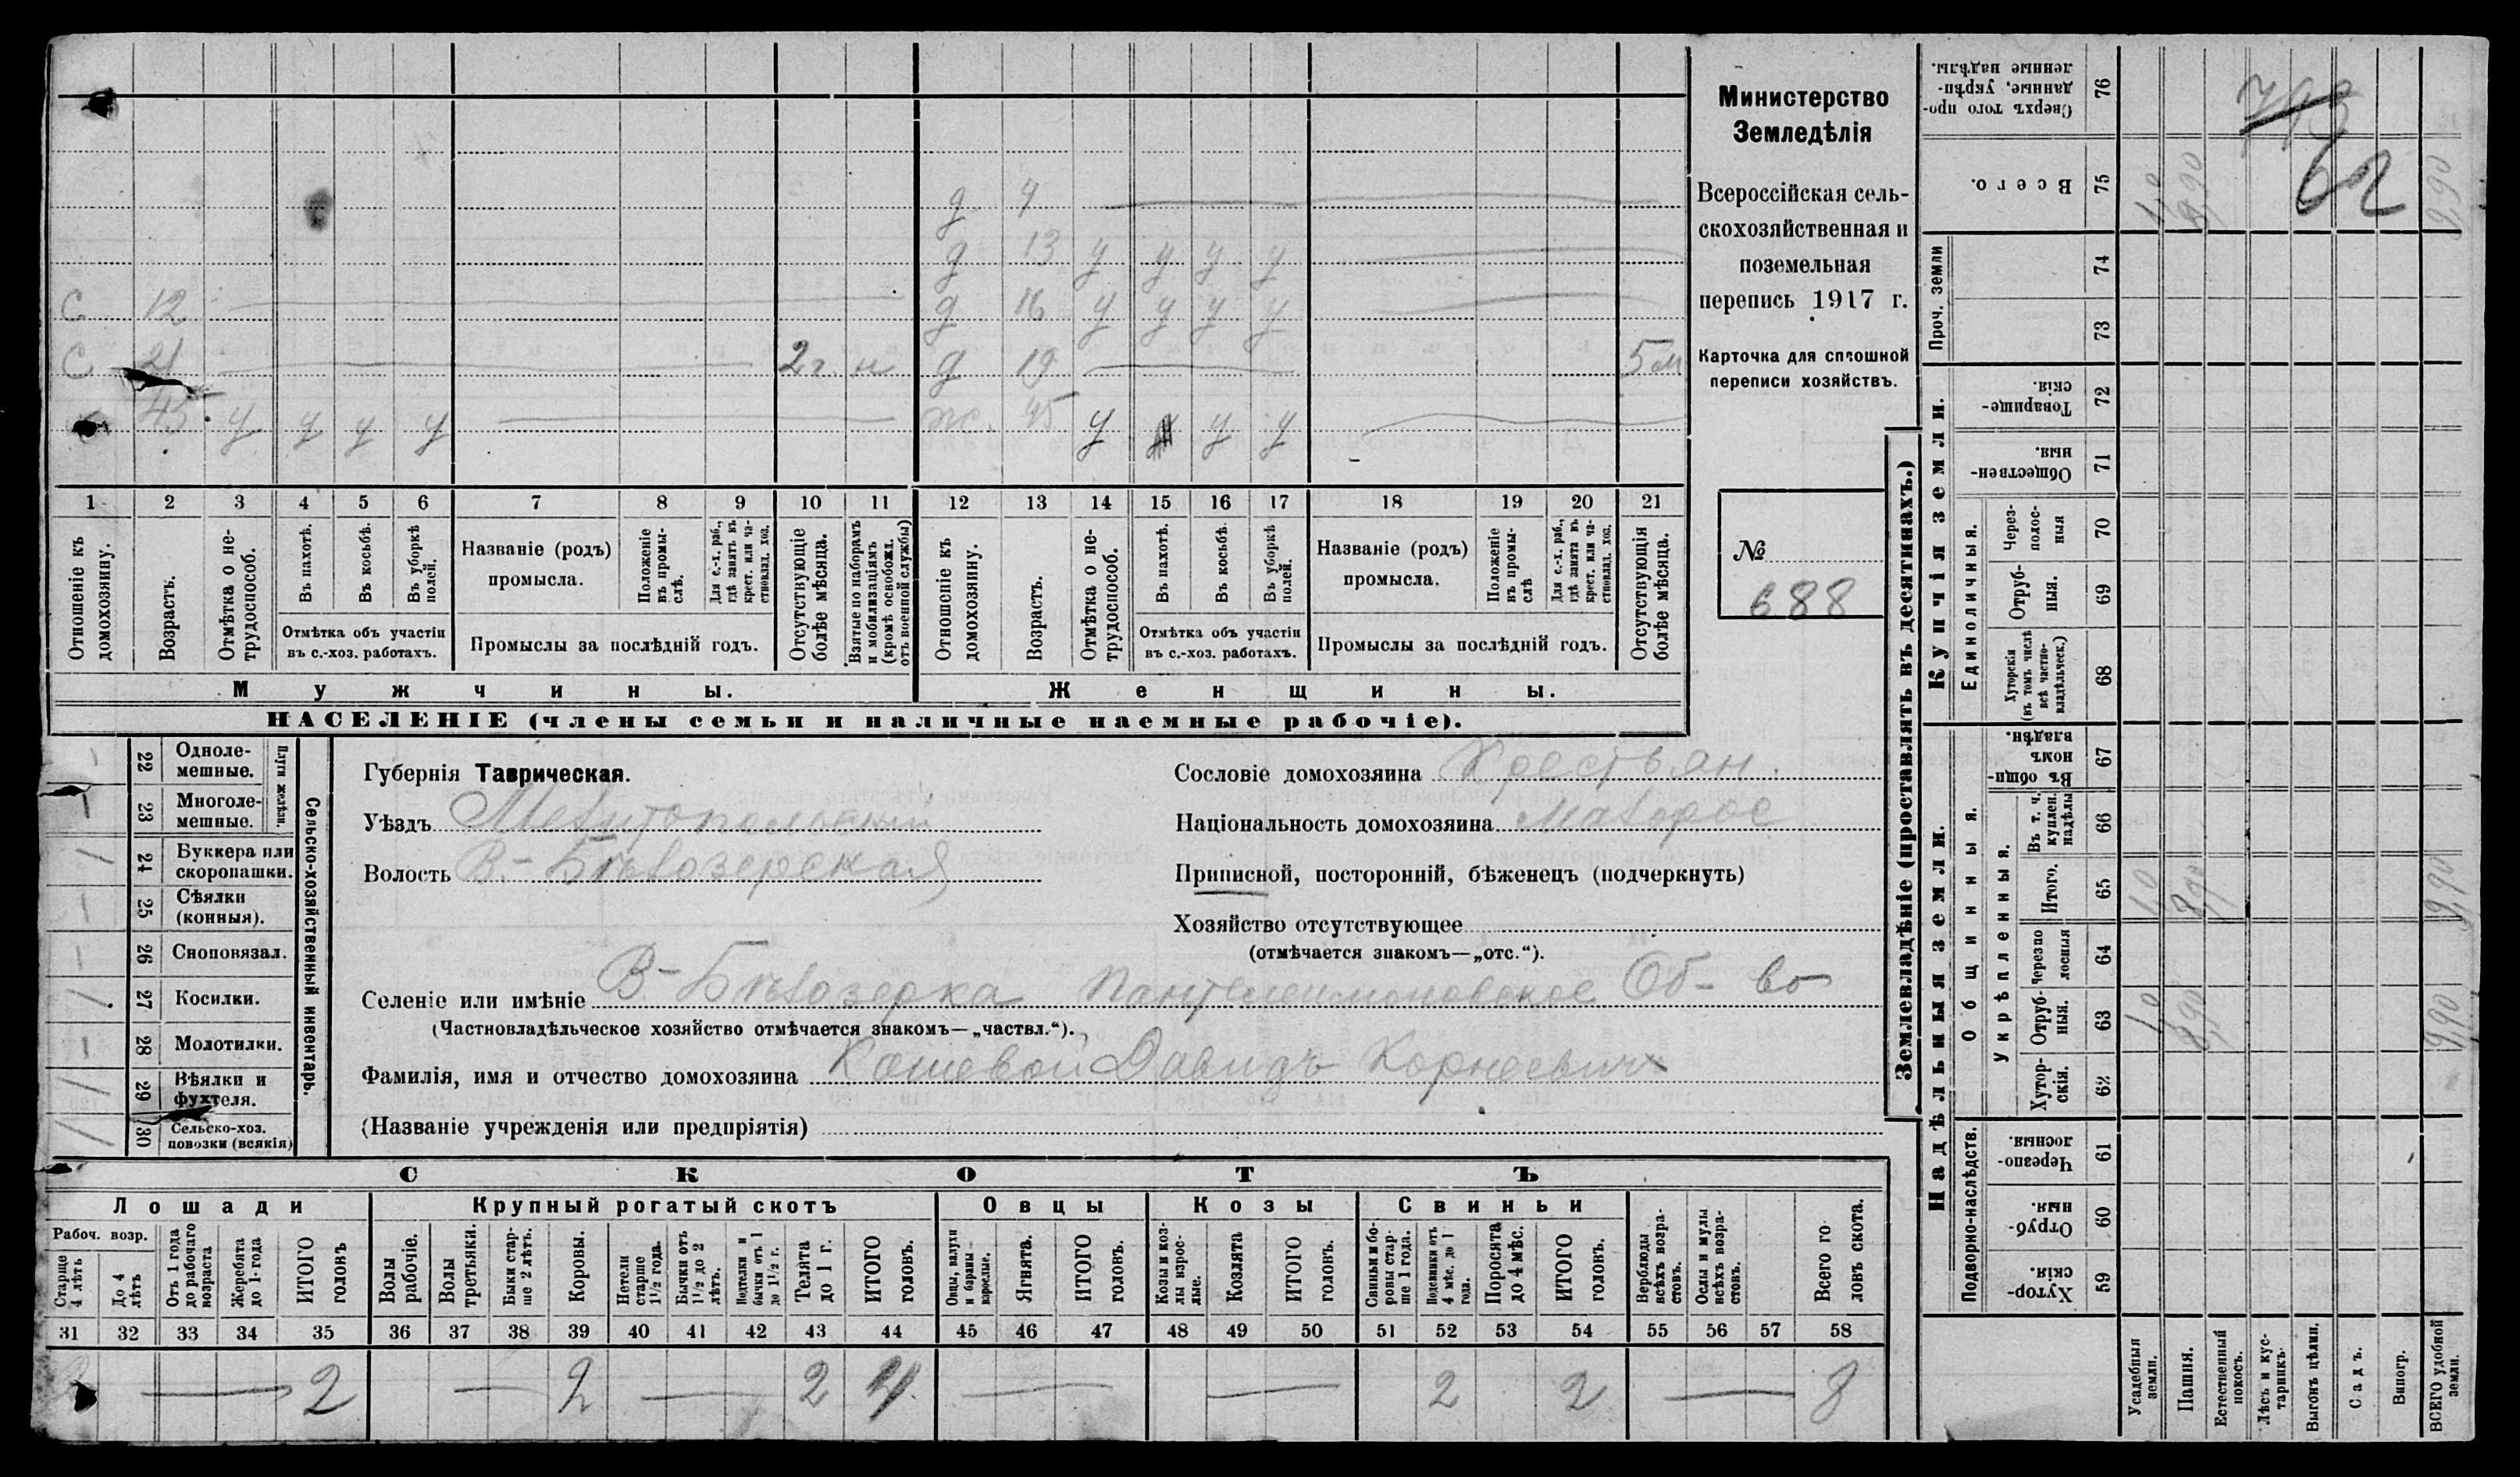 д 4
д 13 у у у у
с 12 д 16 у у у у
с 21 2 г. н д 19 5 м
45 у у у у ж. 45 у у у
1 2 3 4 5 6 7 8 9 10 11 12 13 14 15 16 17 18 19 20 21
Отношеніе къ домохозяину.
Возрастъ.
Отмѣтка о нетрудоспособ.
Въ пахотѣ.
Въ косьбѣ.
Въ уборкѣ полей.
Отмѣтка объ участіи
въ с.-хоз. работахъ.
Названіе (родъ)
промысла.
Положеніе въ промыслѣ.
Для с.-х. раб., гдѣ занятъ въ крест. или частновлад. хоз.
Промыслы за послѣдній годъ.
Отсутствующіе болѣе мѣсяца.
Взятые по наборамъ и мобилизаціямъ (кромѣ освобожд. отъ военной службы)
Отношеніе къ домохозяину.
Возрастъ.
Отмѣтка о нетрудоспособ.
Въ пахотѣ.
Въ косьбѣ.
Въ уборкѣ полей.
Отмѣтка объ участіи
въ с.-хоз. работахъ.
Названіе (родъ)
промысла.
Положеніе въ промыслѣ
Для с.-х. раб., гдѣ занята въ крест. или частновлад. хоз.
Промыслы за послѣдній годъ.
Отсутствующія болѣе мѣсяца.
Мужчины. Женщины.
НАСЕЛЕНІЕ (члены семьи и наличные наемные рабочіе).
Министерство
Земледѣлія
Всероссійская сель-
скохозяйственная и
поземельная
перепись 1917 г.
Карточка для сплошной
переписи хозяйствъ.
№
688
Сельско-хозяйственный инвентарь.
Плуги желѣзн.
22 Одноле-
мешные.
23 Многоле-
мешные.
24 Буккера или
скоропашки.
25 Сѣялки
(конныя).
26 Сноповязал.
27 Косилки.
28 Молотилки.
29 Вѣялки и
фухтеля.
30 Сельско-хоз.
повозки (всякія)
Губернія Таврическая.
Уѣздъ Мелитопольскій
Волость В.-Бѣлозерская
Сословіе домохозяина Крестьян.
Національность домохозяина малорос
Приписной, посторонній, бѣженецъ (подчеркнуть)
Хозяйство отсутствующее
(отмѣчается знакомъ—„отс.“).
Селеніе или имѣніе В-Бѣлозерка Пантелеимоновское Об-во
(Частновладѣльческое хозяйство отмѣчается знакомъ—„частвл.“).
Фамилія, имя и отчество домохозяина Кошевой Давидъ Корнеевич
(Названіе учрежденія или предпріятія)
СКОТЪ
Лошади Крупный рогатый скотъ Овцы Козы Свиньи
Рабоч. возр.
Старше 4 лѣтъ
До 4 лѣтъ
Отъ 1 года до рабочаго возраста
Жеребята до 1-года
ИТОГО головъ
Волы рабочіе.
Волы третьяки.
Быки старше 2 лѣтъ.
Коровы.
Нетели старше 1½ года.
Бычки отъ 1½ до 2 лѣтъ.
Нетелки и бычки отъ 1 до 1½ г.
Телята до 1 г.
ИТОГО головъ.
Овцы, валухи и бараны взрослые.
Ягнята.
ИТОГО головъ.
Козы и козлы взрослые.
Козлята
ИТОГО головъ.
Свиньи и боровы старше 1 года.
Подсвинки отъ 4 мѣс. до 1 года.
Поросята до 4 мѣс.
ИТОГО головъ.
Верблюды всѣхъ возрастовъ.
Ослы и мулы всѣхъ возрастовъ.
Всего головъ скота.
31 32 33 34 35 36 37 38 39 40 41 42 43 44 45 46 47 48 49 50 51 52 53 54 55 56 57 58
2 2 2 4 2 2 8
Землевладѣніе (проставлять въ десятинахъ.)
Надѣльныя земли. Купчія земли. Проч. земли
Подворно-наслѣдств.
Общинныя.
Укрѣпленныя.
Единоличныя.
59 Хуторскія.
60 Отрубныя.
61 Черезполосныя.
62 Хуторскія.
63 Отрубныя.
64 Черезполосныя
65 Итого.
66 Въ т. ч. куплен. надѣлы
67 Въ общинномъ владѣн.
68 Хуторскія (въ томъ числѣ всѣ частновладѣльческ.)
69 Отрубныя.
70 Черезполосныя
71 Общественныя.
72 Товарищескія.
73
74
75 Всего.
76 Сверхъ того проданные, укрѣпленные надѣлы.
Усадебныя земли.
Пашня.
Естественный покосъ.
Лѣсъ и кустарникъ.
Выгонъ цѣлин.
Садъ.
Виногр.
ВСЕГО удобной земли.
793
62